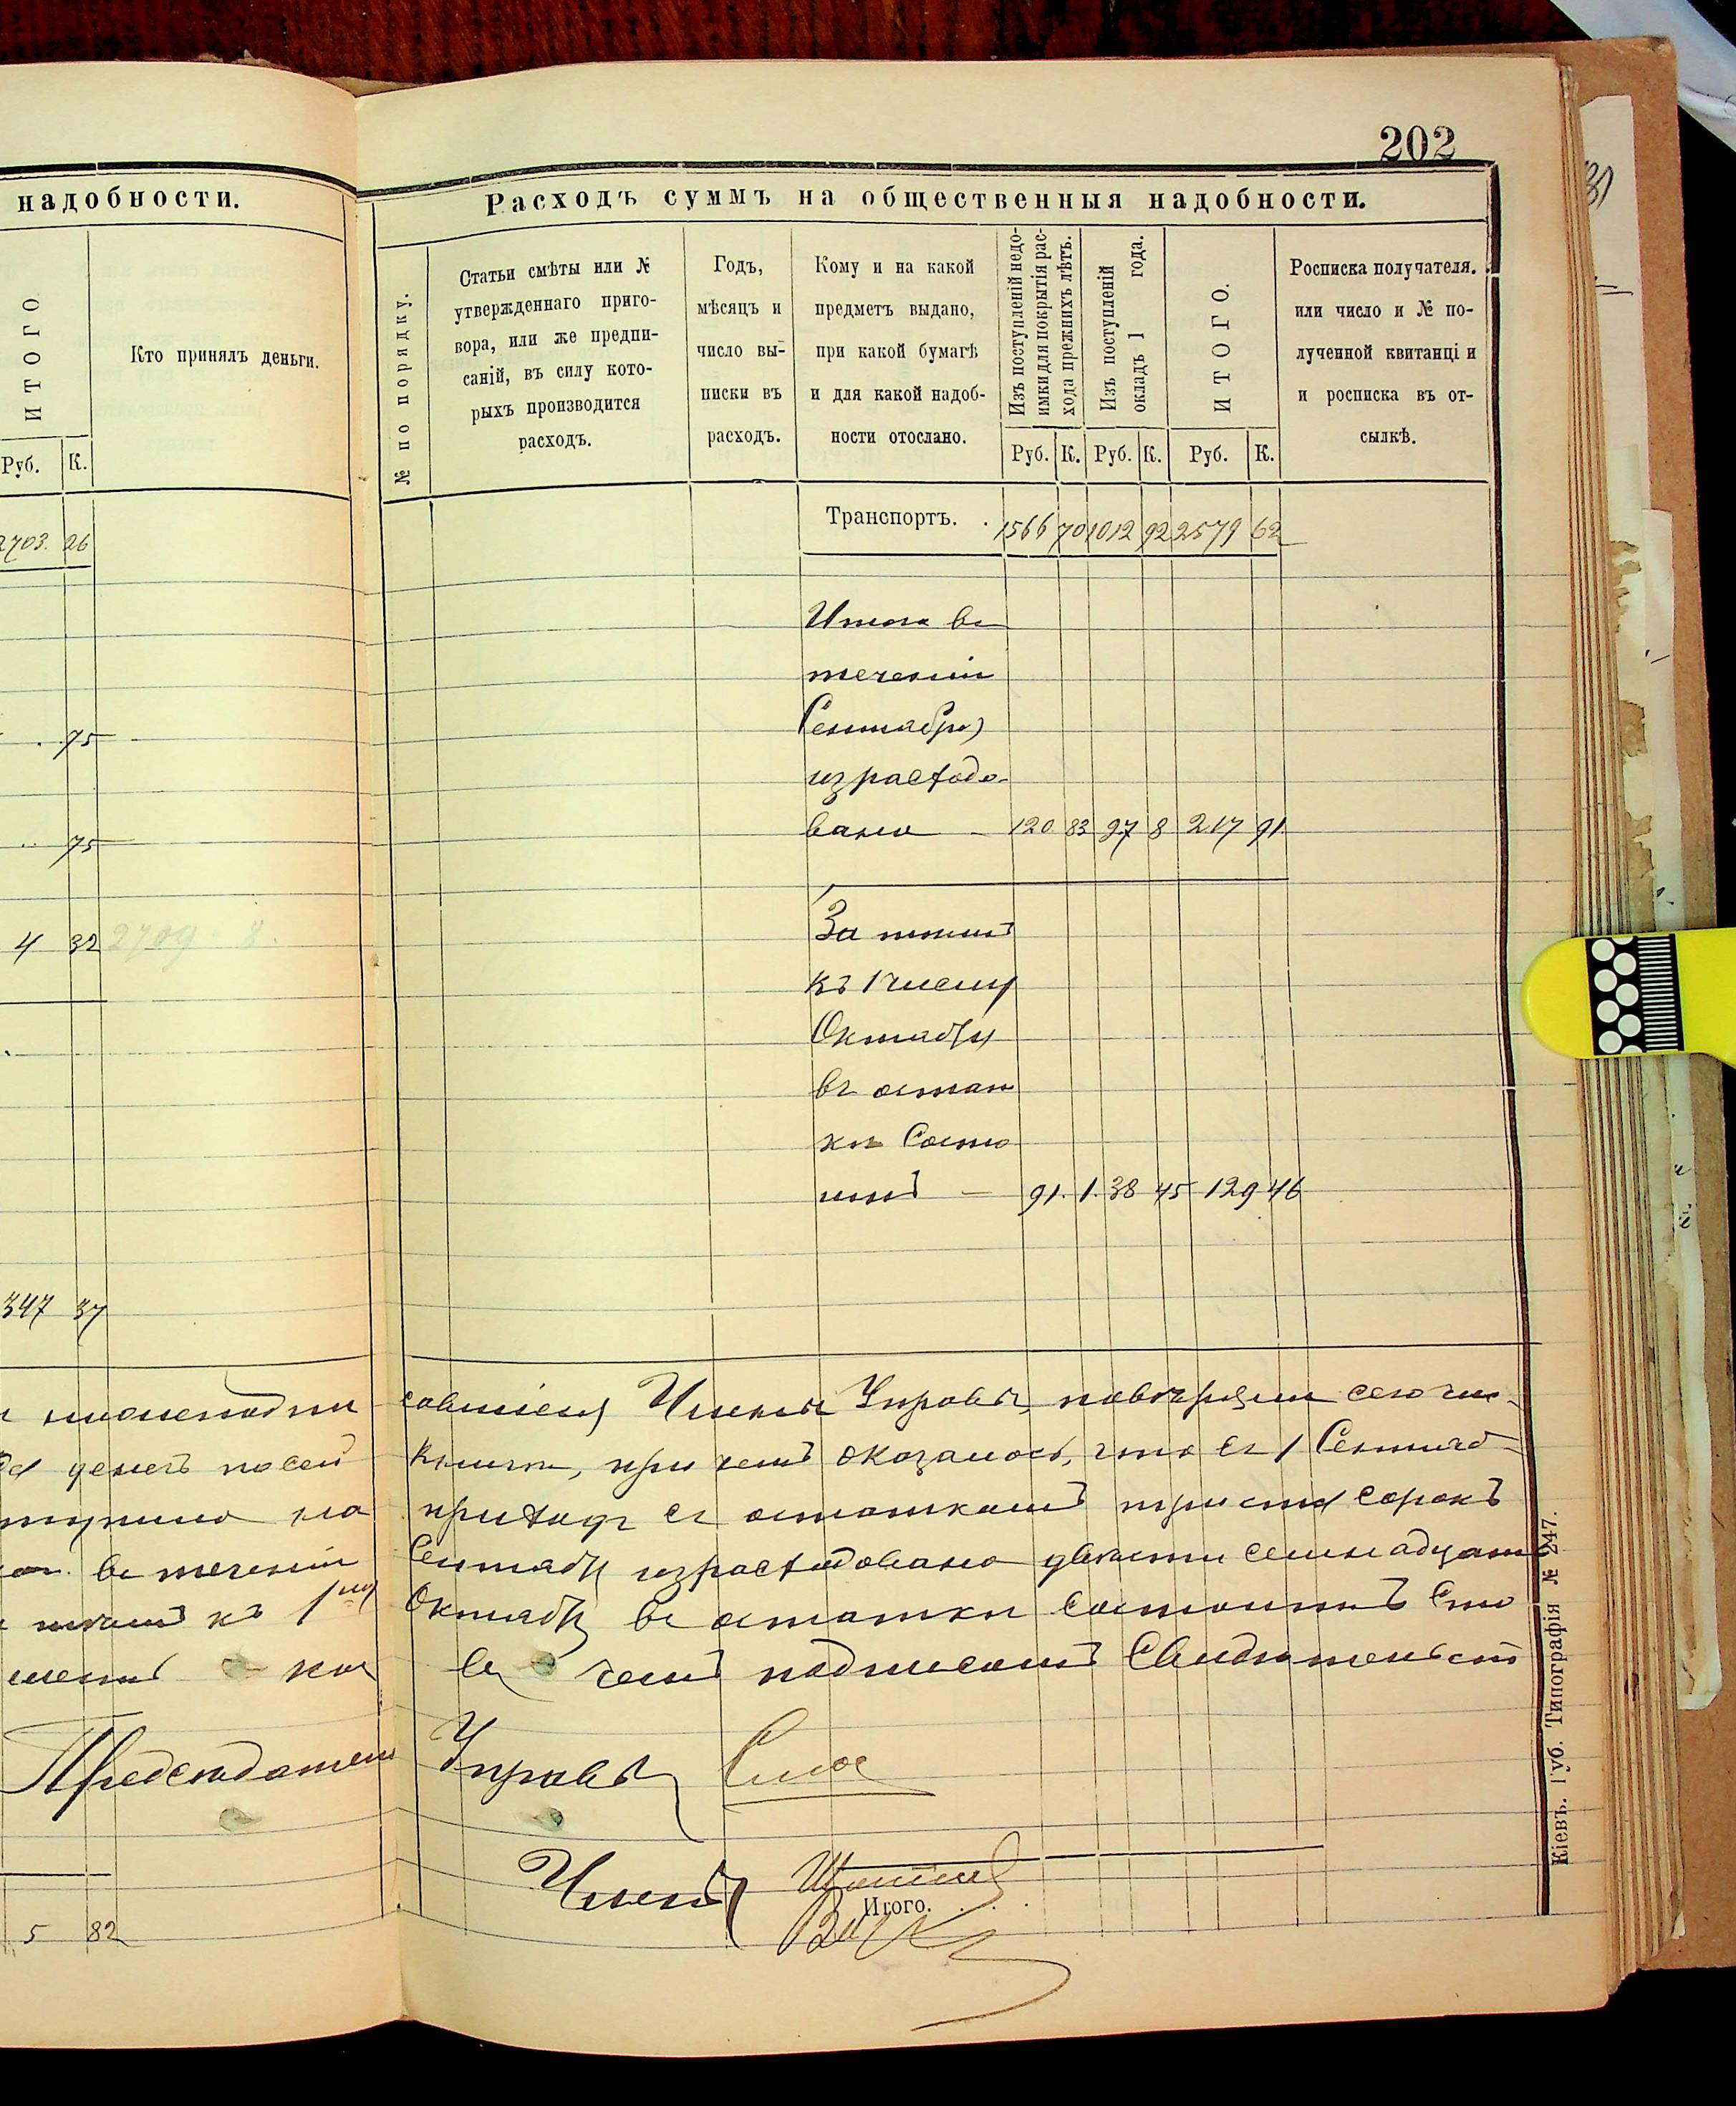 202
надобности.
ИТОГО
Кто принялъ деньги.
Руб. К.
2703. 26
75
75
4 32 2709 8.
347 37
Расходъ суммъ на общественныя надобности.
№ по порядку.
Статьи смѣты или №
утвержденнаго приго-
вора, или же предпи-
саній, въ силу кото-
рыхъ производится
расходъ.
Годъ,
мѣсяцъ и
число вы-
писки въ
расходъ.
Кому и на какой
предметъ выдано,
при какой бумагѣ
и для какой надоб-
ности отослано.
Изъ поступленій недо-
имки для покрытія рас-
хода прежнихъ лѣтъ.
Изъ поступленій
окладъ 1 года.
ИТОГО.
Руб. К. Руб. К. Руб. К.
Росписка получателя.
или число и № по-
лученной квитанці и
и росписка въ от-
сылкѣ.
Транспортъ. . 1566 70 1012 92 2579 62
Итого въ
теченіи
Сентября
израсходо-
вано - 120 83 97 8 217 91
За тѣмъ
къ 1 числу
Октября
въ остат
кѣ состо
итъ - 91. 1. 38 45 129 46
савшіеся Члены Управы, повѣряли сего чис-
денегъ по сей книги, при чемъ оказалось, что съ 1 Сентяб-
приходъ съ остаткомъ триста сорокъ
въ теченіи Сентября израсходовано двѣсти семнадцать
къ 1му Октября въ остатки состоитъ сто
въ чемъ подписомъ свидѣтельст
Предсѣдатель Управы
Члены
Итого. . .
5 82
Кіевъ. Губ. Типографія № 247.